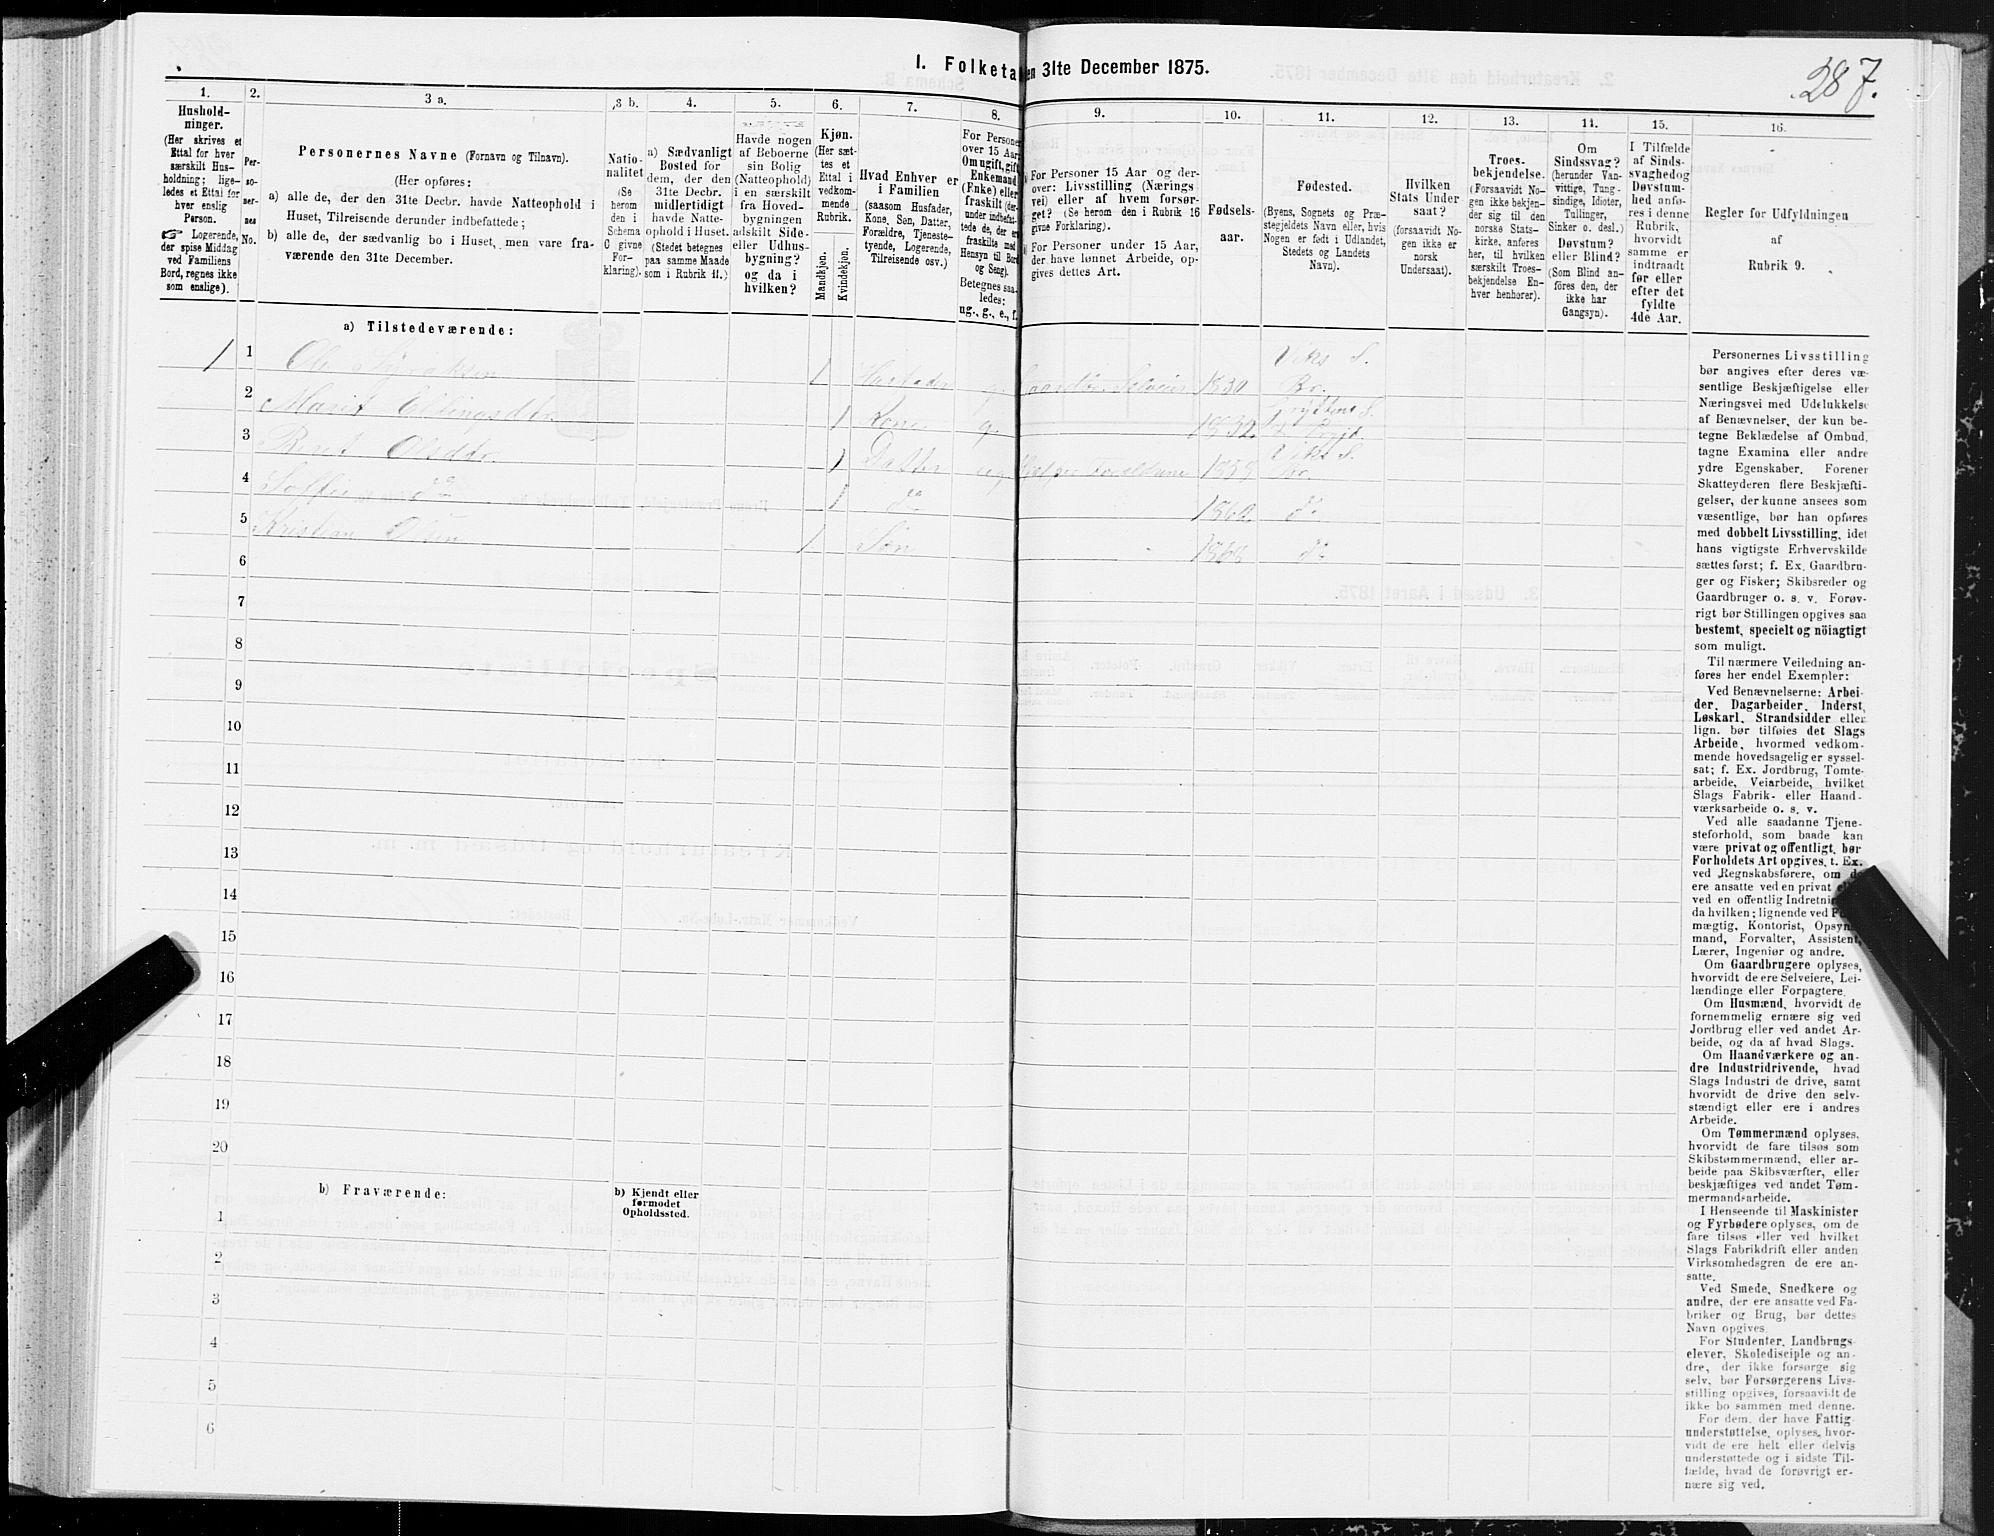 287.
I. Folketa en 31te December 1875.
1. 2. 3 a. 3 b. 4. 5. 6. 7. 8. 9. 10. 11. 12. 13. 14. 15. 16.
Hushold-
ninger.
(Her skrives et
Ettal for hver
særskilt Hus-
holdning; lige-
ledes et Ettal for
hver enslig
Person.
☞ Logerende,
der spise Middag
ved Familiens
Bord, regnes ikke
som enslige).
Per-
so-
ner-
nes
No.
Personernes Navne (Fornavn og Tilnavn).
(Her opføres:
a) alle de, der den 31te Decbr. havde Natteophold i
Huset, Tilreisende derunder indbefattede;
b) alle de, der sædvanlig bo i Huset, men vare fra-
værende den 31te December.
Natio-
nalitet
(Se
herom
den i
Schema
C givne
For-
klaring).
a) Sædvanligt
Bosted for
dem, der den
31te Decbr.
midlertidigt
havde Natte-
ophold i Huset.
(Stedet betegnes
paa samme Maade
som i Rubrik 11.)
Havde nogen
af Beboerne
sin Bolig
(Natteophold)
i en særskilt
fra Hoved-
bygningen
adskilt Side-
eller Udhus-
bygning?
og da i
hvilken?
Kjøn.
(Her sæt-
tes et
Ettal i
vedkom-
mende
Rubrik.
Mandkjøn.
Kvindekjøn.
Hvad Enhver er
i Familien
(saasom Husfader,
Kone, Søn, Datter,
Forældre, Tjeneste-
tyende, Logerende,
Tilreisende osv.)
For Persone
over 15 Aar
Om ugift, gift
Enkemand
(Enke) eller
fraskilt (der-
under indbefat-
tede de, der er
fraskilte med
Hensyn til Bord
og Seng).
Betegnes saa-
ledes:
ug., g., e., f.
For Personer 15 Aar og der-
over: Livsstilling (Nærings
vei) eller af hvem forsør-
get? (Se herom den i Rubrik 16
givne Forklaring).
For Personer under 15 Aar,
der have lønnet Arbeide, op-
gives dettes Art.
Fødsels-
aar.
Fødested.
(Byens, Sognets og Præ-
stegjeldets Navn eller, hvis
Nogen er født i Udlandet,
Stedets og Landets
Navn).
Hvilken
Stats Under
saat?
(forsaavidt No-
gen ikke er
norsk
Undersaat).
Troes-
bekjendelse.
(Forsaavidt No-
gen ikke bekjen-
der sig til den
norske Stats-
kirke, anføres
her, til hvilken
særskilt Troes-
bekjendelse En-
hver henhører).
Om
Sindssvag?
(herunder Van-
vittige, Tung-
sindige, Idioter,
Tullinger,
Sinker o. desl.)
Døvstum?
eller Blind?
(Som Blind an-
føres den, der
ikke har
Gangsyn).
I Tilfælde
af Sinds-
svaghed og
Døvstum-
hed anfø-
res i denne
Rubrik,
hvorvidt
samme er
indtraadt
før eller
efter det
fyldte
4de Aar.
Regler for Udfyldningen
af
Rubrik 9.
a) Tilstedeværende:
Viks S.
1 1 Ole 1 g. Selveier 1830 Br.
2 Marit Ellingsdtr. 1 Kone g. 1832
3 Olsdtr. 1 Datter ug. 1858
4 do 1 do 1860 do
5 Kristian Olsen 1 Søn 1868 do
6
7
8
9
10
11
12
13
14
15
16
17
18
19
20
b) Fraværende:
b) Kjendt eller
formodet
Opholdssted.
1
2
3
4
5
6
Personernes Livsstilling
bør angives efter deres væ-
sentlige Beskjæftigelse eller
Næringsvei med Udelukkelse
af Benævnelser, der kun be-
tegne Beklædelse af Ombud,
tagne Examina eller andre
ydre Egenskaber. Forener
Skatteyderen flere Beskjæfti-
gelser, der kunne ansees som
væsentlige, bør han opføres
med dobbelt Livsstilling, idet
hans vigtigste Erhvervskilde
sættes først; f. Ex. Gaardbru-
ger og Fisker; Skibsreder og
Gaardbruger o. s. v. Forøv-
rigt bør Stillingen opgives saa
bestemt, specielt og nöiagtigt
som muligt.
Til nærmere Veiledning an-
føres her endel Exempler:
Ved Benævnelserne: Arbei-
der, Dagarbeider, Inderst,
Løskarl, Strandsidder eller
lign. bør tilføies det Slags
Arbeide, hvormed vedkom-
mende hovedsagelig er syssel-
sat; f. Ex. Jordbrug, Tomte-
arbeide, Veiarbeide, hvilket
Slags Fabrik- eller Haand-
værksarbeide o. s. v.
Ved alle saadanne Tjene-
steforhold, som baade kan
være privat og offentligt, bør
Forholdets Art opgives, t. Ex.
ved Regnskabsførere, om de
ere ansatte ved en privat
ved en offentlig Indretnin
da hvilken; lignende ved
mægtig, Kontorist, Opsyn
mand, Forvalter, Assistent,
Lærer, Ingeniør og andre.
Om Gaardbrugere oplyses,
hvorvidt de ere Selveiere, Lei-
lændinge eller Forpagtere.
Om Husmænd, hvorvidt de
fornemmelig ernære sig ved
Jordbrug eller ved andet Ar-
beide, og da af hvad Slags.
Om Haandværkere og an-
dre Industridrivende, hvad
Slags Industri de drive, samt
hvorvidt de drive den selv-
stændigt eller ere i andres
Arbeide.
Om Tømmermænd oplyses,
hvorvidt de fare tilsøs som
Skibstømmermænd, eller ar-
beide paa Skibsværfter, eller
beskjæftiges ved andet Tøm-
mermandsarbeide.
I Henseende til Maskinister
og Fyrbødere oplyses, om de
fare tilsøs eller ved hvilket
Slags Fabrikdrift eller anden
Virksomhedsgren de ere an-
satte.
Ved Smede, Snedkere og
andre, der ere ansatte ved Fa-
briker og Brug, bør dettes
Navn opgives.
For Studenter, Landbrugs-
elever, Skoledisciple og an-
dre, der ikke forsørge sig
selv, bør Forsørgerens Livs-
stilling opgives, forsaavidt de
ikke bo sammen med denne.
For dem, der have Fattig
understøttelse, oplyses, hvor-
vidt de ere helt eller delvis
understøttede og i sidste Til-
fælde, hvad de forøvrigt er-
nære sig ved.